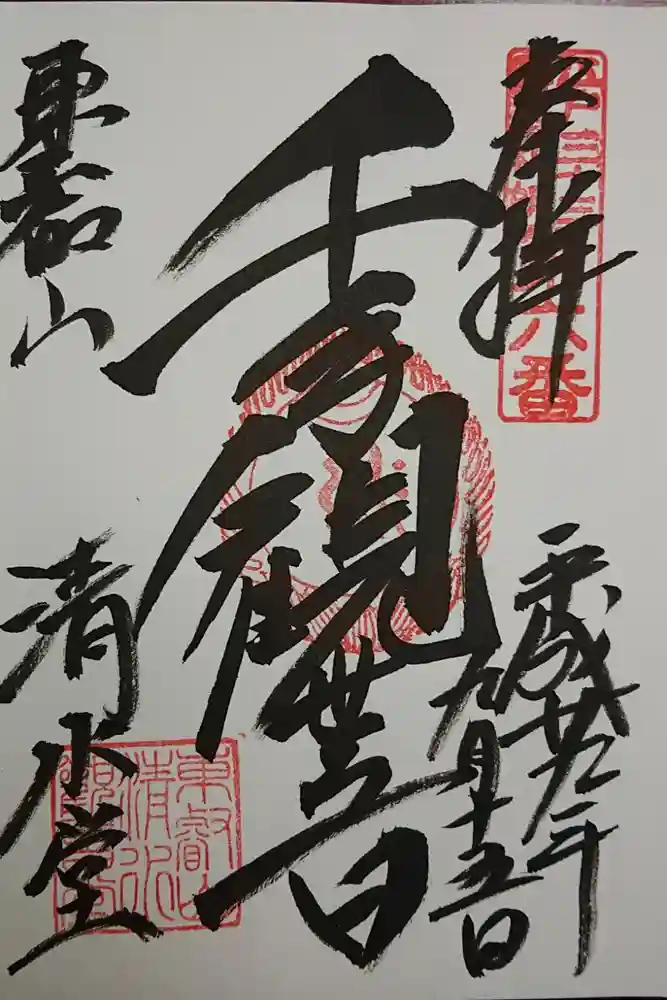 奉拝
六番
平成廿九年
九月十五日
千手観世音
東叡山
清水堂
東叡山
清水